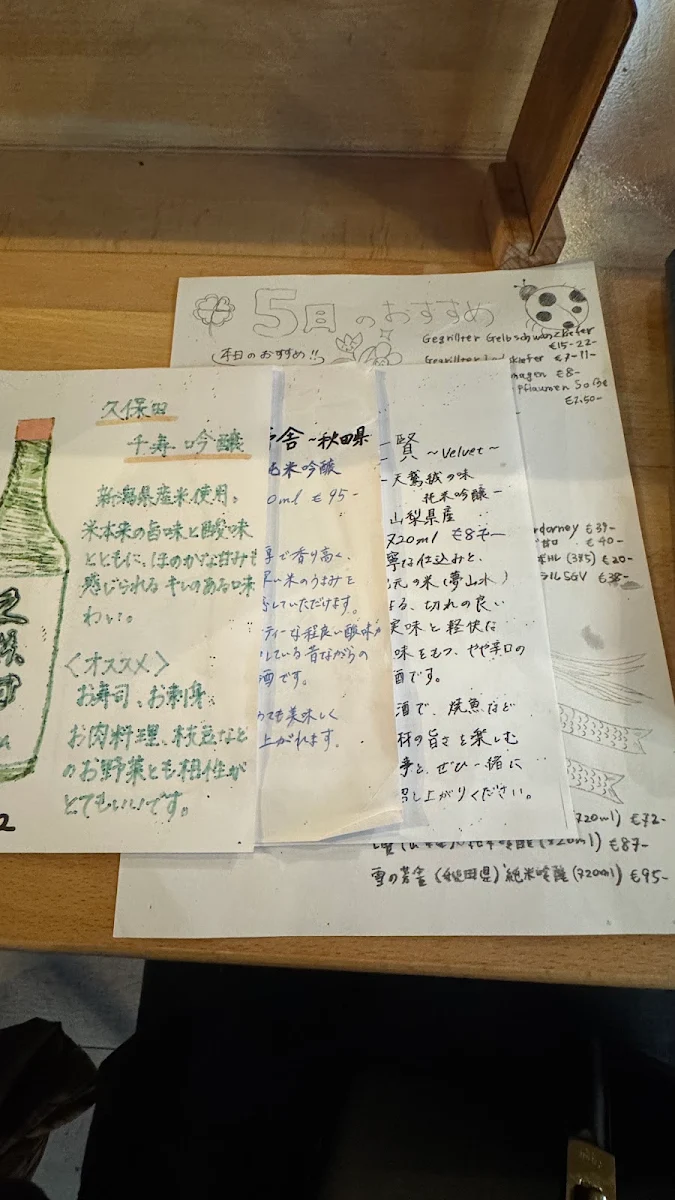 5月のおすすめ
本日のおすすめ!!
Gegrillter Gelbschwanzkiefer
€15-22-
Gegrillter
kiefer €7-11-
magen €8-
Pflaumen Soße
€2,50-
久保田
千寿 吟醸
新潟県産米使用。
米本来の旨味と酸味
とともに、ほのかな甘みも
感じられるキレのある味
わい。
<オススメ>
お寿司、お刺身
お肉料理、枝豆など
のお野菜とも相性が
とてもいいです。
舎~秋田県
純米吟醸
0ml €95-
で香り高く、
米のうまみと
していただけます。
ティーな程良い酸味が
している昔ながらの
酒です。
ても美味しく
上がれます。
一賢 ~Velvet~
-天鵞絨の味
純米吟醸-
山梨県産
720ml €87-
寧な仕込みと、
元の米(夢山水)
よる、切れの良い
味と軽快な
味をもつ、やや辛口の
酒です。
酒で、焼魚など
材の旨さを楽しむ
事と、ぜひ一緒に
召し上がりください。
rdorney €39-
甘口 €40-
(375) €20-
ラルSGV €38-
720ml) €72-
純米吟醸(720ml) €87-
雪の茅舎(秋田県)純米吟醸(720ml) €95-